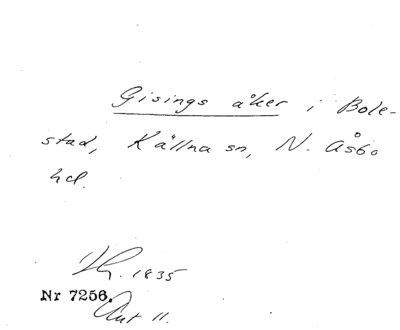 Gisings åker i Bole-
stad, Källna sn, N. Åsbo
hd.
1835
Nr 7256.
Ant 11.